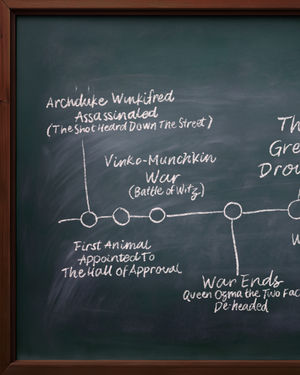 Archduke Winkifred
Assassinaled
(The Shot Heard Down The Street)
Vinko-Munchkin
War
(Battle of Witz)
First Animal
Appointed To
The Hall of Approval
War Ends
Queen Ogma the Two Fac
De-headed
Th
Gre
Drou
W